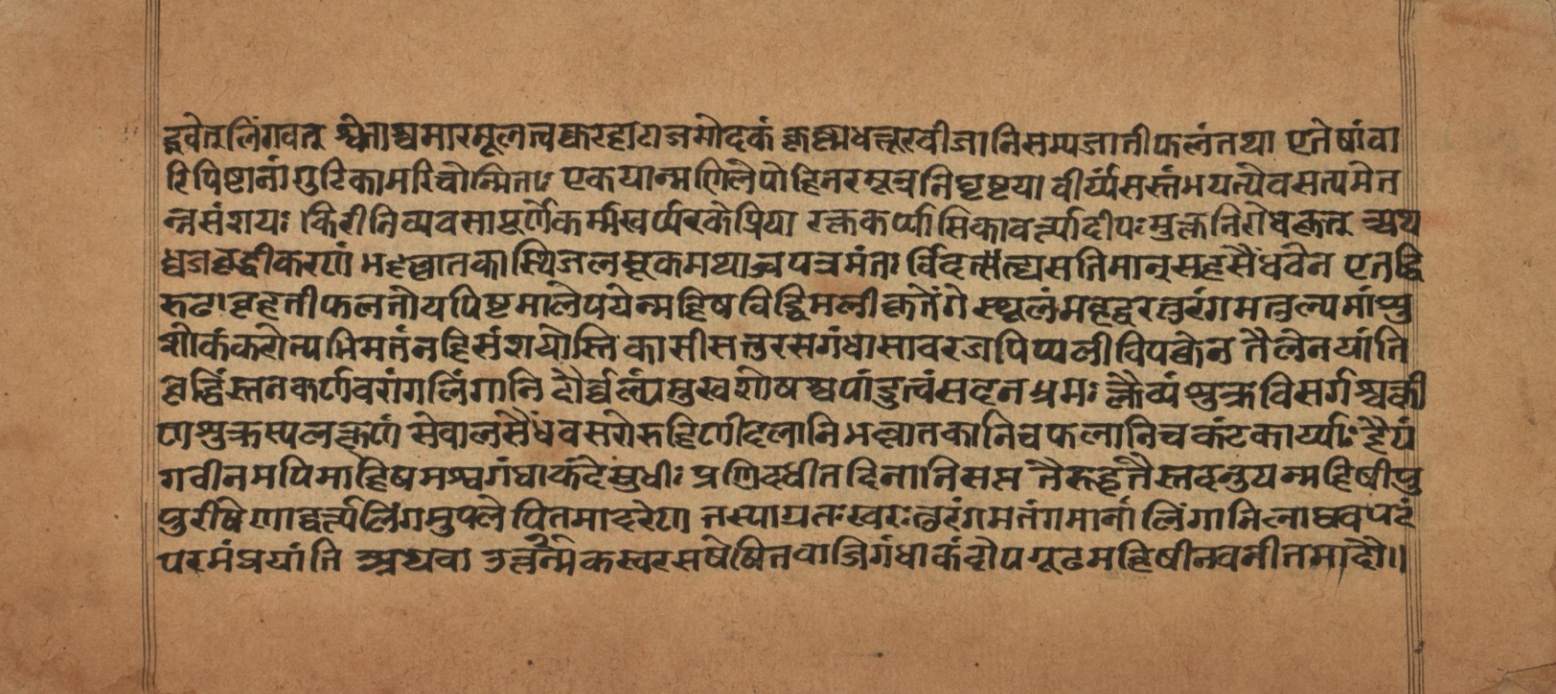 द्भवेतुलिंगवत् श्वेताश्वमारमूलत्वक्करहाटाजमोदकं कृष्णधत्तूरबीजानिसमजातीफलंतथा एतेषांवा
रिपिष्टानांगुटिकामरिचोन्मिता एकयान्मणिलेपोहिनरमूत्रनिघृष्टया वीर्य्यसस्तंभयत्यैवसत्यमेत
न्नसंशयः किरीनिव्यवसापूर्णेकर्म्मखर्प्परकेप्रिया रक्तकर्प्पासिकावर्त्त्यादीपःमुक्तनिरोधकृत् अथ
ध्वजवृद्धीकरणं भल्लातकास्थिजलसूकमथाब्जपत्रमंतः र्विदह्यसतिमान्सहसैंधवेन एतद्वि
रूढाबृहतीफलतोयपिष्टमालेपयेन्महिषविद्विमलीकृतेंगे स्थूलंमहद्वरतुरंगमतुल्यमाशु
शोकंकरोत्यभिमतंनहिसंशयोस्ति कासीसत्तुरसगंधासावरजपिप्पलीविपक्वेन तैलेनयांति
वृद्धिंस्तनकर्णवरांगलिंगानि दौर्ब्बल्यंमुखशोषश्चपांडुत्वंसदनभ्रमः क्लैव्यंशुक्रविसर्गश्चक्षी
णशुक्रस्यलक्षणं सेवालसैंधवसरोरुहिणीदलानिभल्लातकानिचफलानिचकंटकार्य्याः हैयं
गवीनमपिमाहिषमश्वगंधाकंदेसुधीः प्रणिदधीतदिनानिसप्त तैरुद्धृतैस्तदनुयन्महिषीपु
पुरीषेणाद्वर्त्त्यलिंगमुपलेपितमादरेण तस्याग्रतःखरःतुरंगमतंगमानां लिंगानिलाघवपदं
परमंप्रयांति अथवा उन्नर्त्मकस्वरसषेषितवाजिगंधाकंदोपगूढमहिषीनवनीतमादौ॥